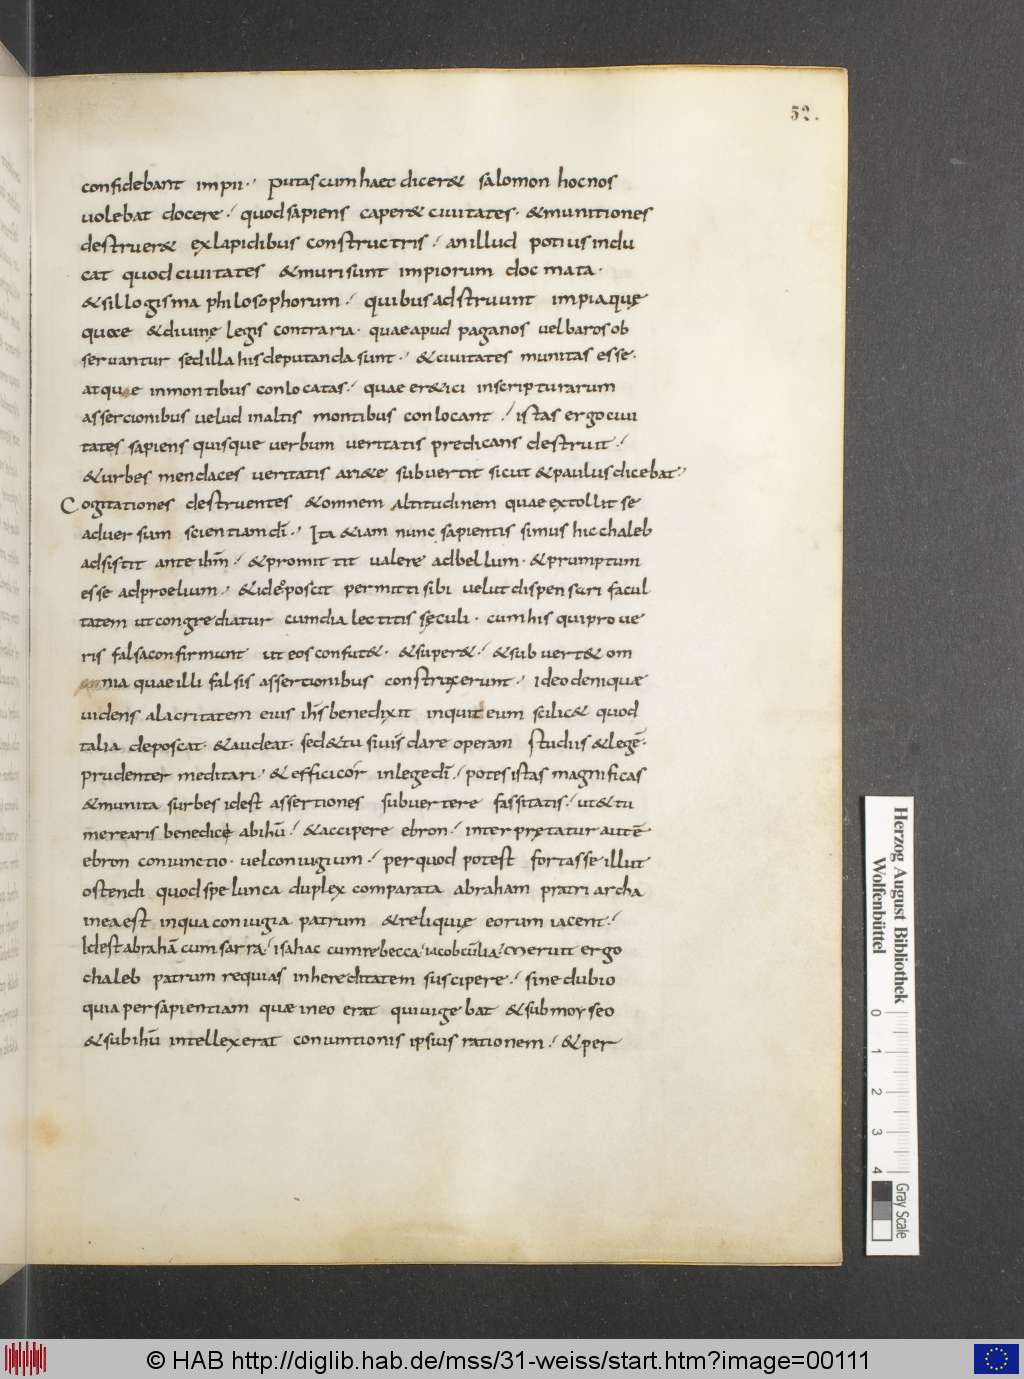 52.
confidebant impii·' putas cum haec dicer& salomon hoc nos
uolebat docere·' quod sapiens caper& ciuitates· & munitiones
destruer& ex lapidibus constructris·' an illud potius indu
cat quod ciuitates & muri sunt impiorum docmata·
& sillogisma philosophorum·' quibus adstruunt impia quę
quoee & diuinę legis contraria· quae apud paganos uel barosob
seruantur sed illa his deputanda sunt·' & ciuitates munitas esse·
atquae in montibus conlocatas·' quae er&ici in scripturarum
assercionibus uelud in altis montibus conlocant·' istas ergo ciui
tates sapiens quisque uerbum ueritatis predicans destruit·'
& urbes mendaces ueritatis ari&e subuertit sicut & paulus dicebat·'
Cogitationes destruentes & omnem altitudinem quae extollit se
aduersum scientiam dī·' Ita &iam nunc sapientis simus hic chaleb
adsistit ante ihm̄·' & promittit ualere ad bellum· & prumptum
esse ad proelium·' & ideo poscit permitti sibi uelut dispensari facul
tatem ut congrediatur cum dialectitis sęculi· cum his qui pro ue
ris falsa confirmunt ut eos confut&· & super&·' & subuert& om
omnia quae illi falsis assertionibus construxerunt·' ideo deniquæ
uidens alacritatem eius ihs̄ benedixit inquit eum scilic& quod
talia deposcat· & audeat· sed & tu si uis dare operam studiis & legē·
prudenter meditari·' & efficior in lege dī·' potes istas magnificas
& munitas urbes idest assertiones subuertere fassitatis·' ut & tu
merearis benedice ab ihū·' & accipere ebron·' interprętatur autē
ebron coniunctio· uel coniugium·' per quod potest fortasse illut
ostendi quod spelunca duplex comparata abraham pratriarcha
in ea est in qua coniugia patrum & reliquię eorum iacent·'
Idest abrahā cum sarra·' isahac cum rebecca·' iacob cū lia·' meruit ergo
chaleb patrum requias in hereditatem suscipere·' sine dubio
quia per sapientiam quæ in eo erat qui uigebat & sub moyseo
& sub ihū intellexerat coniuntionis ipsius rationem·' & per
Herzog August Bibliothek
Wolfenbüttel
0 1 2 3 4
Gray Scale
© HAB http://diglib.hab.de/mss/31-weiss/start.htm?image=00111